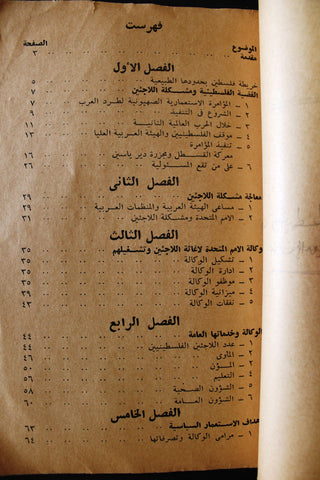 فهرست
الموضوع الصفحة
مقدمة .. .. .. .. ٣
الفصل الاول
خريطة فلسطين بحدودها الطبيعية .. .. ٥
القضية الفلسطينية ومشكلة اللاجئين .. .. ٧
١ ـ المؤامرة الاستعمارية الصهيونية لطرد العرب ٧
٢ ـ الشروع في التنفيذ .. .. ٩
٣ ـ خلال الحرب العالمية الثانية .. .. ١١
٤ ـ موقف الفلسطينيين والهيئة العربية العليا ١٣
٥ ـ تنفيذ المؤامرة
معركة القسطل ومجزرة دير ياسين .. ١٦
٦ ـ على من تقع المسئولية .. .. ٢٦
الفصل الثانى
معالجة مشكلة اللاجئين .. .. ٢٩
١ ـ مساعي الهيئة العربية والمنظمات العربية ٢٩
٢ ـ الامم المتحدة ومشكلة اللاجئين .. .. ٣١
الفصل الثالث
وكالة الامم المتحدة لاغاثة اللاجئين وتشغيلهم ٣٥
١ ـ تشكيل الوكالة .. .. ٣٥
٢ ـ ادارة الوكالة .. .. ٣٥
٣ ـ موظفو الوكالة .. .. ٣٥
٤ ـ ميزانية الوكالة .. .. ٣٩
٥ ـ نفقات الوكالة .. .. ٤٣
الفصل الرابع
الوكالة وخدماتها العامة .. .. ٤٤
١ ـ عدد اللاجئين الفلسطينيين .. .. ٤٤
٢ ـ المأوى .. .. ٤٦
٣ ـ المؤن .. .. ٤٧
٤ ـ التعليم .. .. ٥٠
٥ ـ الشؤون الصحية .. .. ٥٨
٦ ـ الشؤون العامة .. .. ٦٠
الفصل الخامس
اهداف الاستعمار السياسية .. .. ٦٣
١ ـ مرامي الوكالة وتصرفاتها .. .. ٦٤